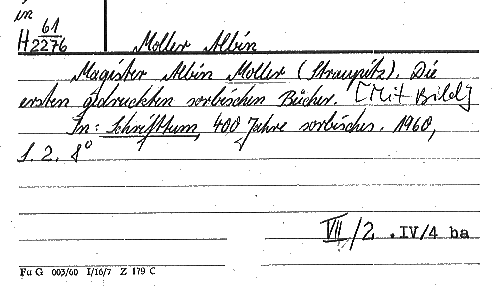 in
61
H 2276
Moller Albin
Magister Albin Moller (Straupitz). Die
ersten gedruckten sorbischen Bücher. [Mit Bild]
In: Schrifttum, 400 Jahre sorbisches. 1960,
S. 2. 8°
VII/2 .IV/4 ha
Fu G 003/60 I/16/7 Z 179 C